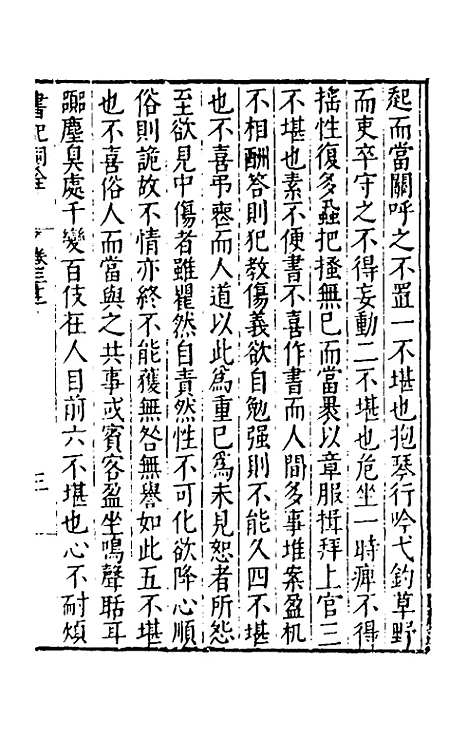 起而當關呼之不置一不堪也抱琴行吟弋釣草野
而吏卒守之不得妄動二不堪也危坐一時痺不得
揺性復多蝨把搔無已而當裹以章服揖拜上官三
不堪也素不便書不喜作書而人間多事堆案盈机
不相酬答則犯教傷義欲自勉强則不能久四不堪
也不喜弔喪而人道以此爲重已爲未見恕者所怨
至欲見中傷者雖瞿然自責然性不可化欲降心順
俗則詭故不情亦終不能獲無咎無譽如此五不堪
也不喜俗人而當與之共事或賓客盈坐鳴聲聒耳
囂塵臭處千變百伎在人目前六不堪也心不耐煩
書記洞詮
三